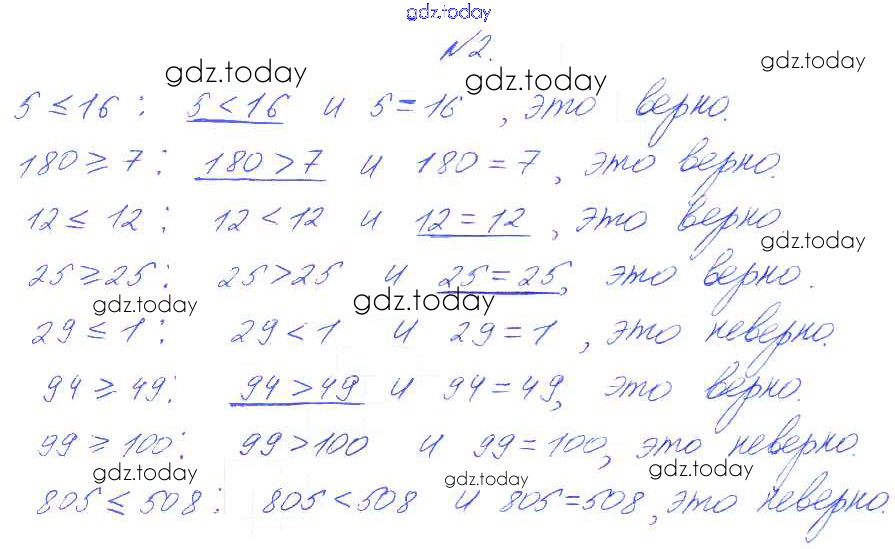 gdz.today
№2.
gdz.today gdz.today gdz.today
5 ≤ 16 : 5 < 16 и 5 = 16 , это верно.
180 ≥ 7 : 180 > 7 и 180 = 7 , это верно.
12 ≤ 12 : 12 < 12 и 12 = 12 , это верно.
gdz.today
25 ≥ 25 : 25 > 25 и 25 = 25, это верно.
gdz.today gdz.today
29 ≤ 1 : 29 < 1 и 29 = 1 , это неверно.
94 ≥ 49 : 94 > 49 и 94 = 49, это верно.
99 ≥ 100 : 99 > 100 и 99 = 100, это неверно.
gdz.today gdz.today gdz.today
805 ≤ 508 : 805 < 508 и 805 = 508, это неверно.